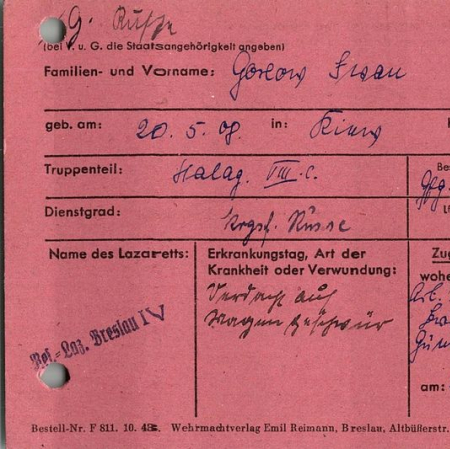 G. Russe
(bei V. u. G. die Staatsangehörigkeit angeben)
Familien- und Vorname: Gorlow Iwan
geb. am: 20. 5. 08. in: Kiew
Truppenteil: Stalag. VIII.C.
Dienstgrad: Krgsf. Russe
Name des Lazaretts:
Erkrankungstag, Art der
Krankheit oder Verwundung:
Verdacht auf
Magengeschwür
Res.-Laz. Breslau IV
Be
Zug
wohe
Arb.
am:
Bestell-Nr. F 811. 10. 43. Wehrmachtverlag Emil Reimann, Breslau, Altbüßerstr.